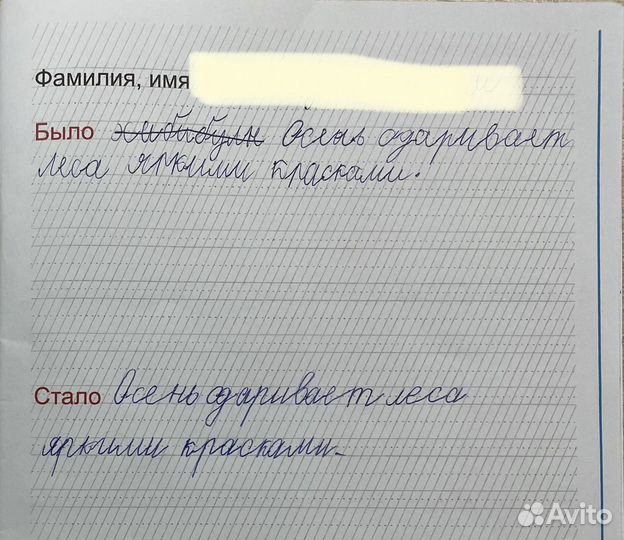 Фамилия, имя
Было Осень одаривает
леса яркими красками.
Стало Осень одаривает леса
яркими красками.
Avito